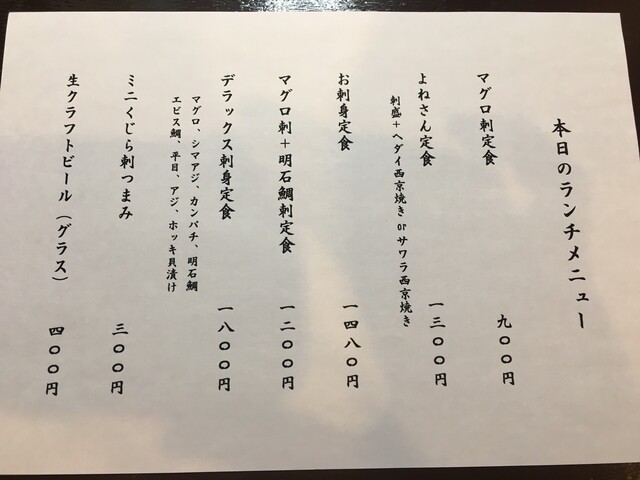 本日のランチメニュー
マグロ刺定食 九〇〇円
よねさん定食 一三〇〇円
刺盛＋ヘダイ西京焼き or サワラ西京焼き
お刺身定食 一四八〇円
マグロ刺＋明石鯛刺定食 一二〇〇円
デラックス刺身定食 一八〇〇円
マグロ、シマアジ、カンパチ、明石鯛
エビス鯛、平目、アジ、ホッキ貝漬け
ミニくじら刺つまみ 三〇〇円
生クラフトビール（グラス） 四〇〇円